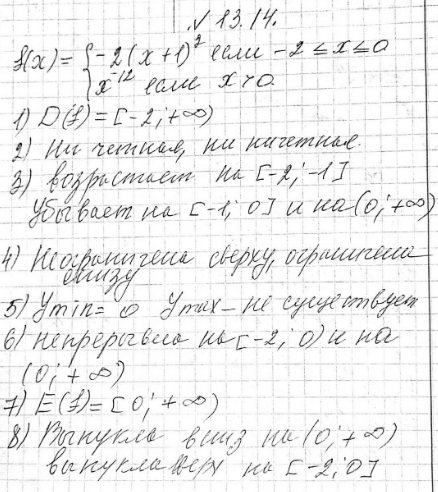 √ 13.14.
f(x) = { -2(x+1)² если -2 ≤ x ≤ 0
x⁻¹² если x > 0.
1) D(f) = [-2; +∞)
2) ни четная, ни ничетная.
3) возрастает на [-2; -1]
Убывает на [-1; 0] и на (0; +∞)
4) Неограничена сверху, ограничена
снизу
5) Ymin = 0 Ymax - не существует
6) непрерывна на [-2; 0) и на
(0; +∞)
7) E(f) = [0; +∞)
8) Выпукла вниз на (0; +∞)
выпукла верх на [-2; 0]